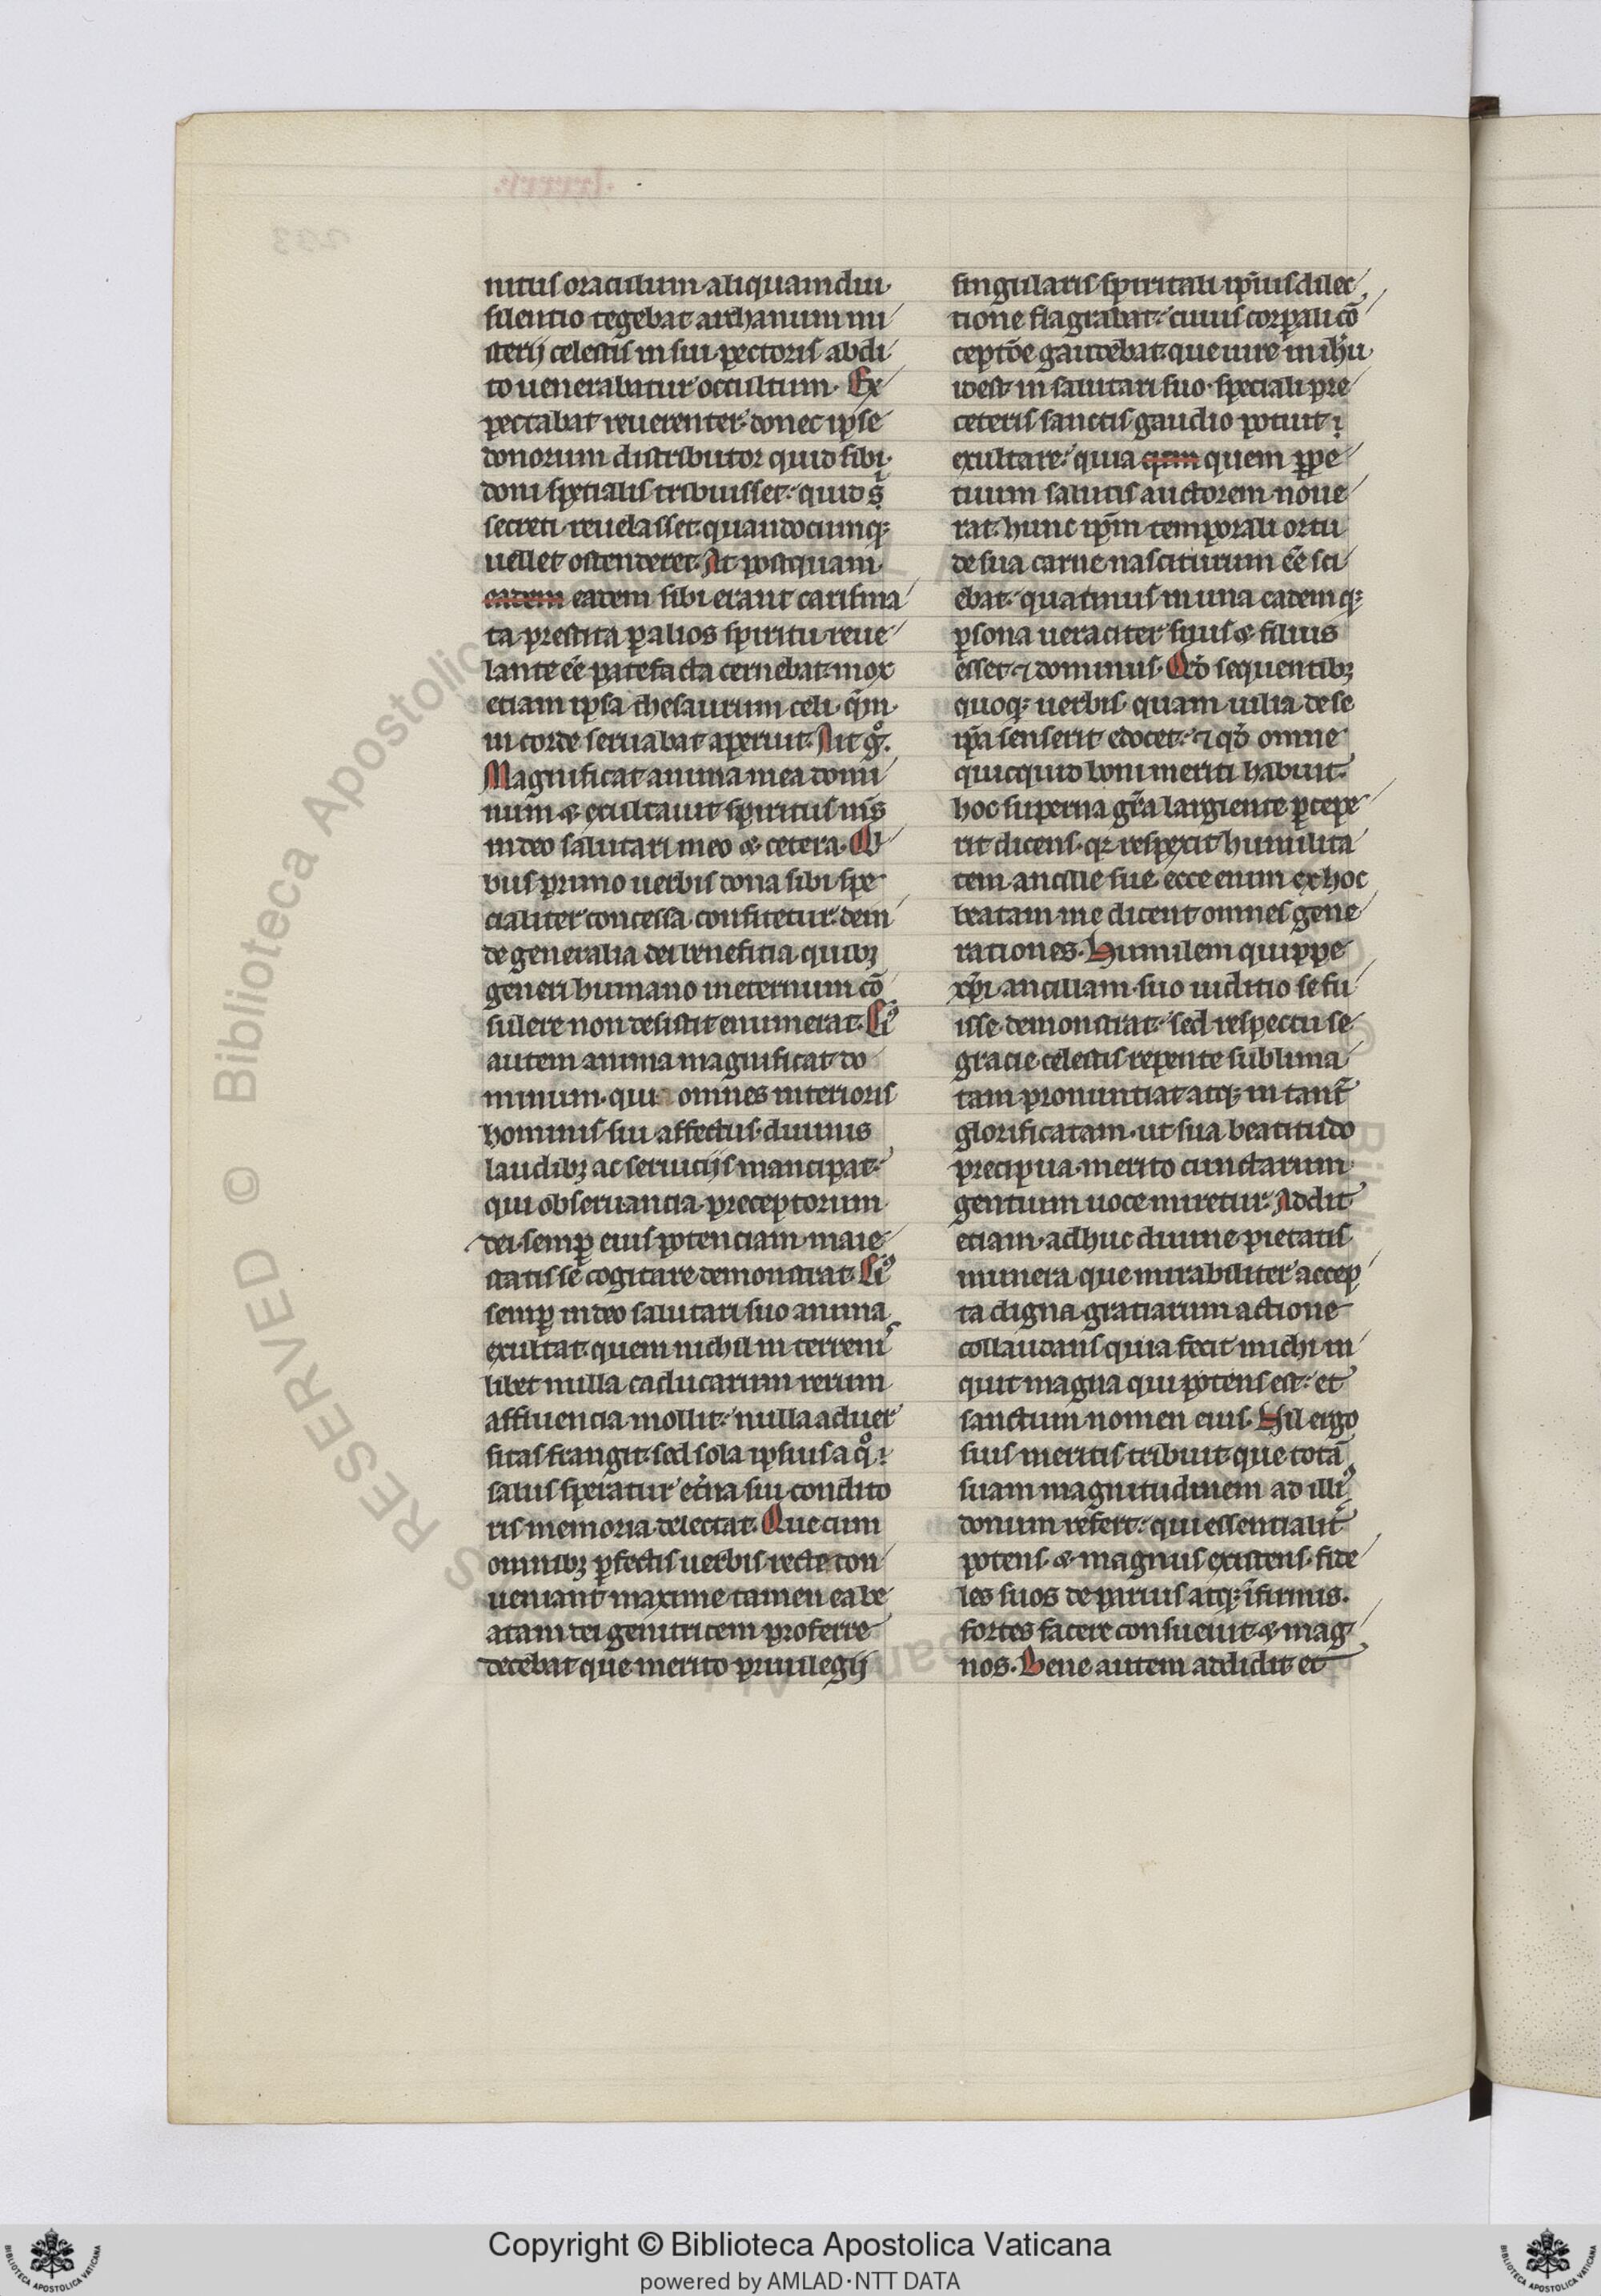 nitus oraculum aliquamdiu
silentio tegebat archanum mi
sterij celestis in sui pectoris abdi
to uenerabatur occultum. Ex
pectabat reuerenter donec ipse
donorum distributor quid sibi
doni spetialis tribuisset: quid s̄
secreti reuelasset quandocumq;
uellet ostenderet. At postquam
eadem eadem sibi erant carisma
ta prestita ꝑ alios spiritu reue
lante eē̄ patefacta cernebat mox
etiam ipsa thesaurum celi q̄m
in corde seruabat aperuit. Ait gͦ.
Magnificat anima mea domi
num & exultauit spiritus ms̄
in deo salutari meo & cetera. Q
bus primo uerbis dona sibi spe
cialiter concessa confitetur dein
de generalia dei beneficia quibꝫ
generi humano in eternum cō
sulere non desistit enumerat. Ei9
autem anima magnificat do
minum qui omnes interioris
hominis sui affectus diuinis
laudibꝫ ac seruitijs mancipat:
qui obseruancia preceptorum
dei semꝑ eius potenciam maie
statis se cogitare demonstrat. Ei9
semꝑ in deo salutari suo anima
exultat quem nichil in terrenis
libet nulla caducarum rerum
affluencia mollit: nulla aduer
sitas frangit sed sola ipsius a qͦ
salus speratur et̄na sui condito
ris memoria delectat. Que cum
omnibꝫ ꝑfectis uerbis recte con
ueniant maxime tamen ea be
atam dei genitricem proferre
decebat que merito priuilegij
singularis spiritali ip̄ius dilec
tione flagrabat: cuius corꝑali cō
ceptōe gaudebat que iure in ih̄u
idest in salutari suo speciali pre
ceteris sanctis gaudio potuit
exultare: quia quem quem ꝑpe
tuum salutis auctorem noue
rat hunc ip̄m temporali ortu
de sua carne nasciturum eē̄ sci
ebat: quatinus in una eademq;
ꝑsona ueraciter suus & filius
esset ⁊ dominus. Qd̄ sequentibꝫ
quoq; uerbis quam uilia de se
ip̄a senserit edocet: ⁊ qd̄ omne
quicquid boni meriti habuit
hoc superna gr̄a largiente ꝑcepe
rit dicens qꝛ respexit humilita
tem ancille sue ecce enim ex hoc
beatam me dicent omnes gene
rationes. Humilem quippe
xp̄i ancillam suo iuditio se fu
isse demonstrat: sed respectu se
gracie celestis repente sublima
tam pronuntiat atq; in tant̄
glorificatam ut sua beatitudo
precipua merito cunctarum
gentium uoce miretur. Addit
etiam adhuc diuine pietatis
munera que mirabiliter accep
ta digna gratiarum actione
collaudans quia fecit michi in
quit magna qui potens est: et
sanctum nomen eius. Nil ergo
suis meritis tribuit que totā
suam magnitudinem ad illi9
donum refert: qui essentialit̄
potens & magnus existens fide
les suos de paruis atq; īfirmis
fortes facere consueuit & mag
nos. Bene autem addidit et
Copyright © Biblioteca Apostolica Vaticana
powered by AMLAD·NTT DATA